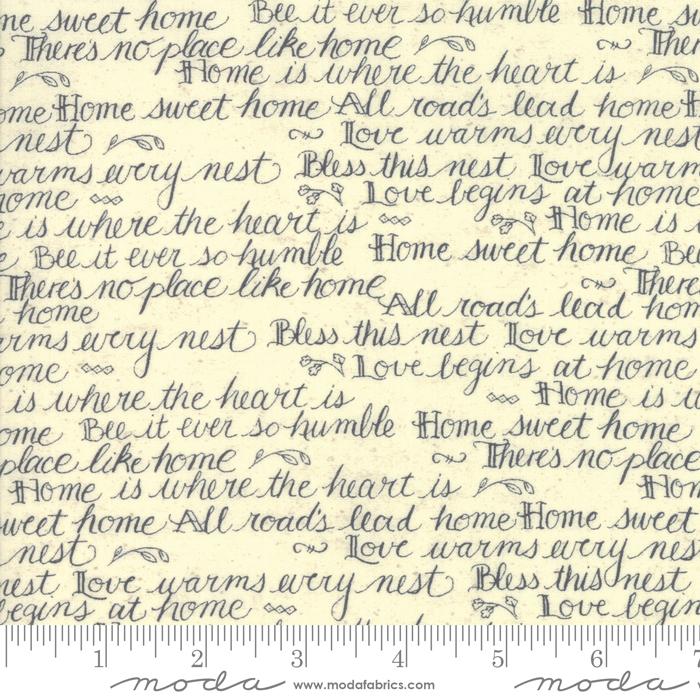 me sweet home Bee it ever so humble Home s
There's no place like home Ther
Home is where the heart is
ome Home sweet home All road's lead home H
nest Love warms every nest
warms every nest Bless this nest Love warm
home Love begins at home
e is where the heart is Home is
e Bee it ever so humble Home sweet home Bee
There's no place like home There
home All road's lead hom
rms every nest Bless this nest Love warms
ome Love begins at home
is where the heart is Home is w
ome Bee it ever so humble Home sweet home
place like home There's no place
Home is where the heart is Hom
weet home All road's lead home Home sweet
nest Love warms every nes
nest Love warms every nest Bless this nest
begins at home Love begin
1 2 3 4 5 6 7
moda www.modafabrics.com moda